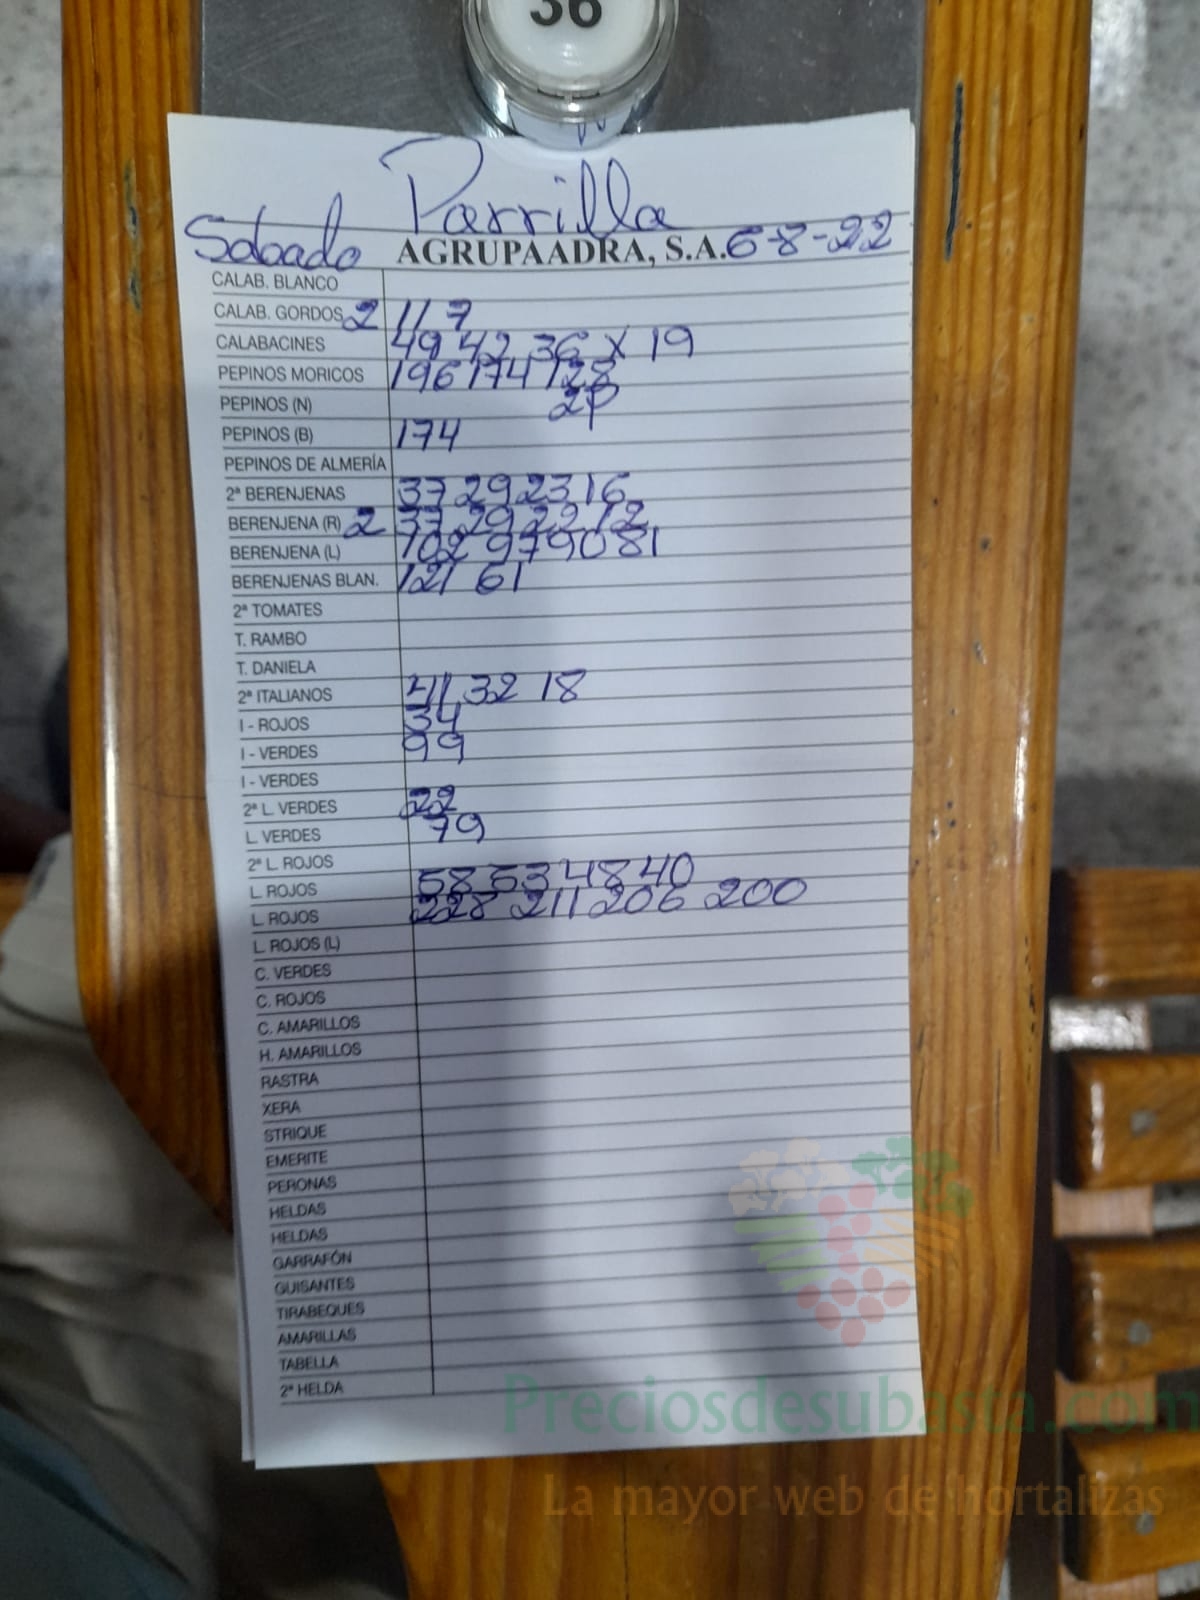 36
Parrilla
Sabado AGRUPAADRA, S.A. 6-8-22
CALAB. BLANCO
CALAB. GORDOS 2 11 7
CALABACINES 49 42 36 X 19
PEPINOS MORICOS 196 174 128
PEPINOS (N) 2P
PEPINOS (B) 174
PEPINOS DE ALMERÍA
2ª BERENJENAS 37 29 23 16
BERENJENA (R) 2 37 29 22 12
BERENJENA (L) 102 97 90 81
BERENJENAS BLAN. 121 61
2ª TOMATES
T. RAMBO
T. DANIELA
2ª ITALIANOS 41 32 18
I - ROJOS 34
I - VERDES 99
I - VERDES
2ª L. VERDES 22
L. VERDES 79
2ª L. ROJOS
L. ROJOS 58 53 48 40
L. ROJOS 228 211 206 200
L. ROJOS (L)
C. VERDES
C. ROJOS
C. AMARILLOS
H. AMARILLOS
RASTRA
XERA
STRIQUE
EMERITE
PERONAS
HELDAS
HELDAS
GARRAFÓN
GUISANTES
TIRABEQUES
AMARILLAS
TABELLA
2ª HELDA
Preciosdesubasta.com
La mayor web de hortalizas